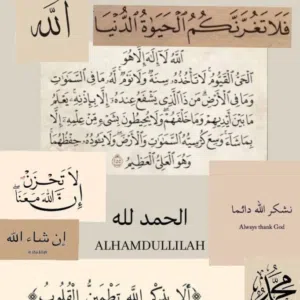 الله
فَلَا تَغُرَّنَّكُمُ الْحَيَوٰةُ الدُّنْيَا
اللَّهُ لَا إِلَٰهَ إِلَّا هُوَ
الْحَيُّ الْقَيُّومُ لَا تَأْخُذُهُ سِنَةٌ وَلَا نَوْمٌ لَهُ مَا فِي السَّمَٰوَٰتِ
وَمَا فِي الْأَرْضِ مَن ذَا الَّذِي يَشْفَعُ عِندَهُ إِلَّا بِإِذْنِهِ يَعْلَمُ
مَا بَيْنَ أَيْدِيهِمْ وَمَا خَلْفَهُمْ وَلَا يُحِيطُونَ بِشَيْءٍ مِنْ عِلْمِهِ إِلَّا
بِمَا شَاءَ وَسِعَ كُرْسِيُّهُ السَّمَٰوَٰتِ وَالْأَرْضَ وَلَا يَئُودُهُ حِفْظُهُمَا
وَهُوَ الْعَلِيُّ الْعَظِيمُ
لَا تَحْزَنْ
إِنَّ اللَّهَ مَعَنَا
نشكر الله دائما
Always thank God
الحمد لله
ALHAMDULLILAH
إن شاء الله
محمد
﴿أَلَا بِذِكْرِ اللَّهِ تَطْمَئِنُّ الْقُلُوبُ﴾